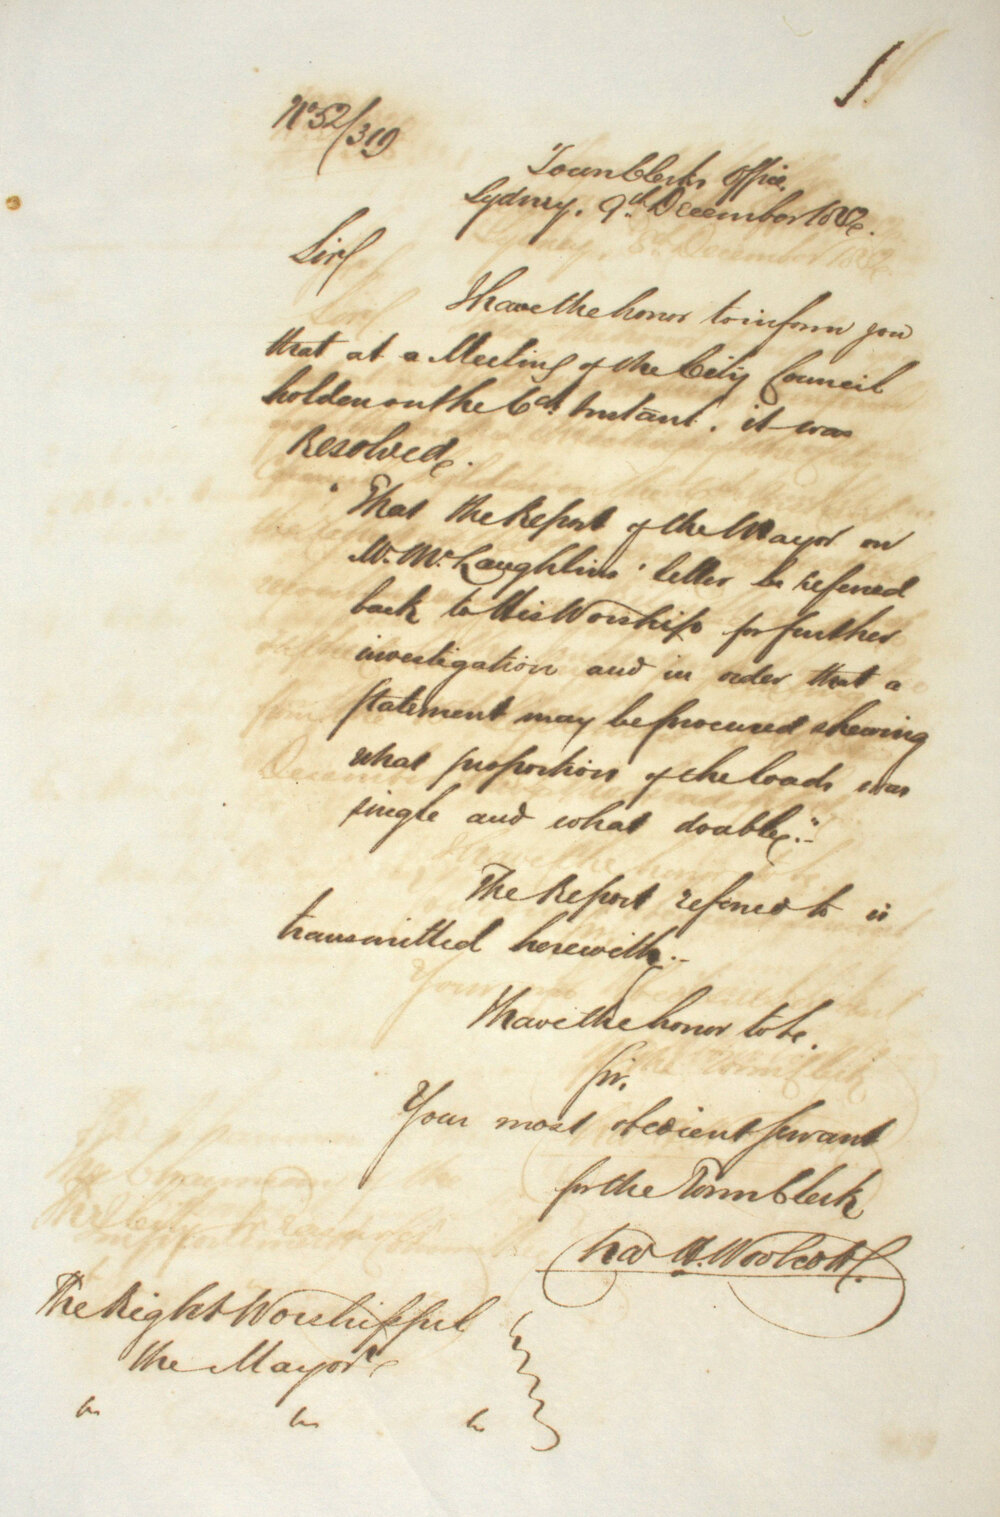 No 52/319
Town Clerks Office,
Sydney, 9th December 1852.
Sir
I have the honor to inform you
that at a Meeting of the City Council
holden on the 6th Instant, it was
Resolved.
"That the Report of the Mayor on
Mr. McLaughlins' letter be referred
back to His Worship for further
investigation and in order that a
statement may be procured shewing
what proportion of the loads was
single and what double."
The Report referred to is
transmitted herewith.
I have the honor to be,
Sir,
Your most obedient servant
for the Town Clerk
Chas H. Woolcott
The Right Worshipful
the Mayor